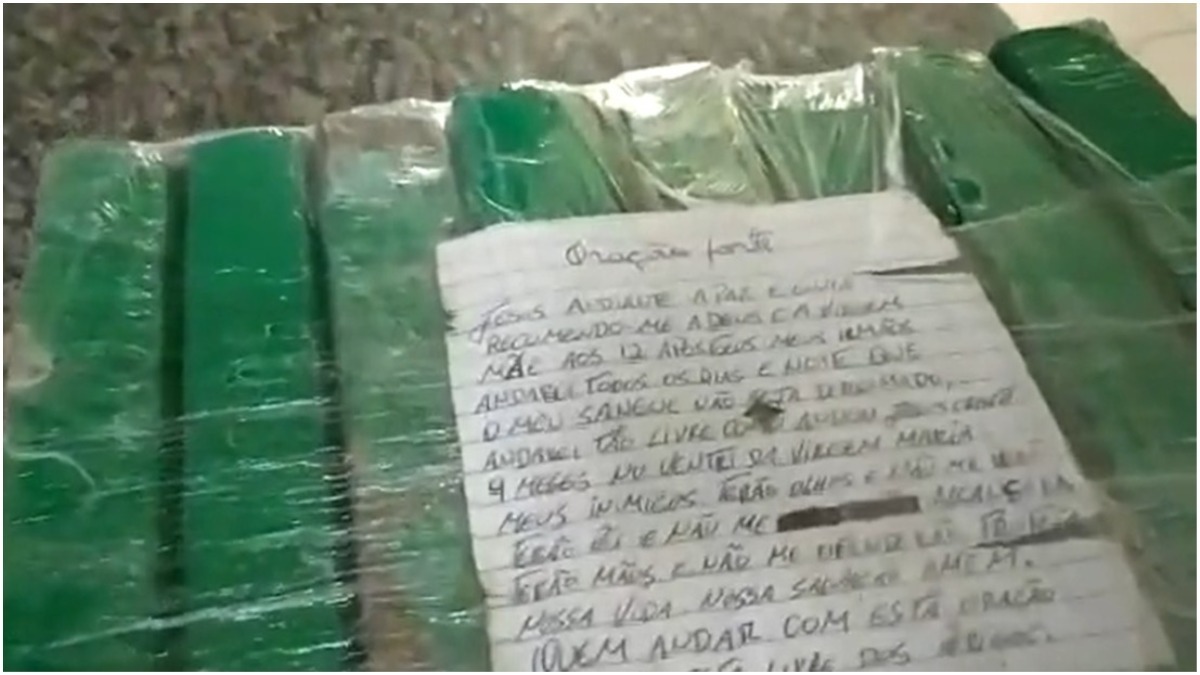 Oração forte
JESUS ADIANTE A PAZ E GUIA
RECUMENDO-ME A DEUS E A VIRGEM
MÃE AOS 12 APOSTEUS MEUS IRMÃOS
ANDAREI TODOS OS DIAS E NOITE QUE
O MEU SANGUE NÃO SEJA DERRAMADO,
ANDAREI TÃO LIVRE COMO ANDOU
9 MESES NO VENTRE DA VIRGEM MARIA
MEUS INIMIGOS TERÃO OLHOS E NÃO ME
TERÃO E NÃO ME
TERÃO MÃOS E NÃO ME
NOSSA VIDA NOSSA SALVAÇÃO AMÉM.
QUEM ANDAR COM ESTA ORAÇÃO
LIVRE DOS